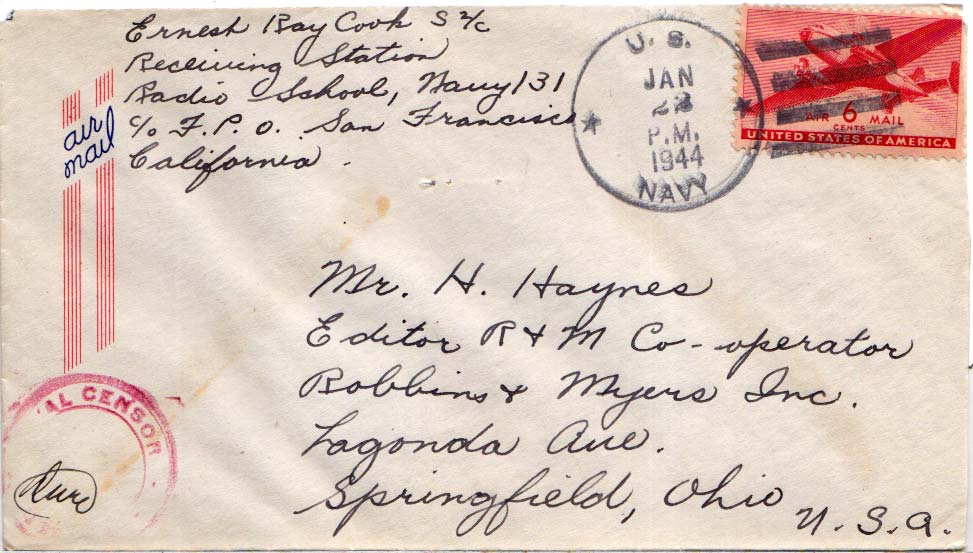 Ernest Ray Cook S 2/c
Receiving Station
Radio School, Navy 131
c/o F.P.O. San Francisco
California.
air
mail
U. S.
JAN
P.M.
1944
NAVY
AIR 6 MAIL
CENTS
UNITED STATES OF AMERICA
Mr. H. Haynes
Editor R & M Co-operator
Robbins & Myers Inc.
Lagonda Ave.
Springfield, Ohio
U.S.A.
AL CENSOR